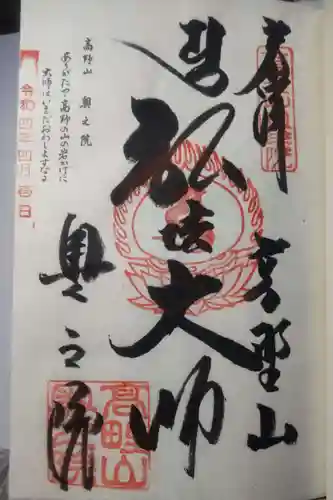 奉拝
高野山
弘法大師
高野山 奥之院
ありがたや高野の山の岩かげに
大師はいまだおわしますなる
奥之院
令和四年四月
高野山